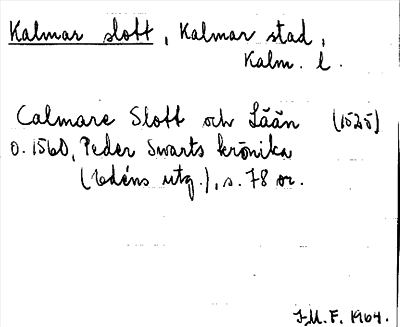 Kalmar slott, Kalmar stad,
Kalm. l.
Calmare Slott och Lään (1525)
o. 1560, Peder Swarts krönika
(Edéns utg.), s. 78 or.
J.M.F. 1964.